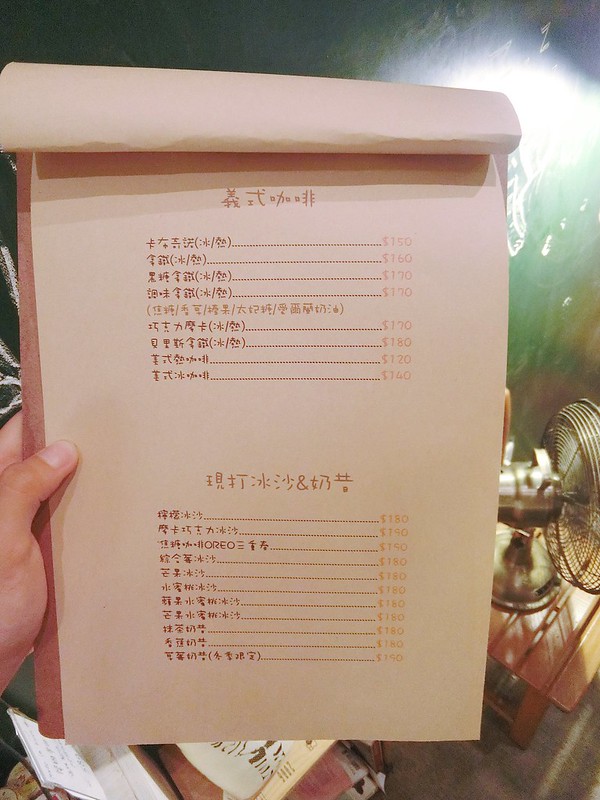 義式咖啡
卡布奇諾(冰/熱)........$150
拿鐵(冰/熱)........$160
黑糖拿鐵(冰/熱)........$170
調味拿鐵(冰/熱)........$170
(焦糖/香草/榛果/太妃糖/愛爾蘭奶油)
巧克力摩卡(冰/熱)........$170
貝里斯拿鐵(冰/熱)........$180
美式熱咖啡........$120
美式冰咖啡........$140
現打冰沙&奶昔
檸檬冰沙........$180
摩卡巧克力冰沙........$190
焦糖咖啡OREO三重奏........$190
綜合莓冰沙........$180
芒果冰沙........$180
水蜜桃冰沙........$180
蘋果水蜜桃冰沙........$180
芒果水蜜桃冰沙........$180
抹茶奶昔........$180
香蕉奶昔........$180
草莓奶昔(冬季限定)........$190